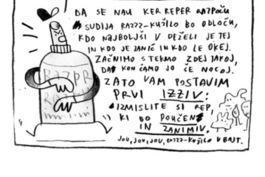 DA SE NAU KER REPER RAZPOČU
SUDIJA RAZZZ-KUŽILO BO ODLOČU,
KDO NAJBOLJŠI V DEŽELI JE TEJ
IN KDO JE ZANIČ IN KDO LE OKEJ.
ZAČNIMO S TEKMO ZDEJ TAKOJ,
DA KONČAMO JO ŠE NOCOJ.
ZATO VAM POSTAVIM
PRVI IZZIV:
IZMISLITE SI REP,
KI BO POUČEN
IN ZANIMIV.
JOU, JOU, JOU, RAZZZ-KUŽILO V BAJT.